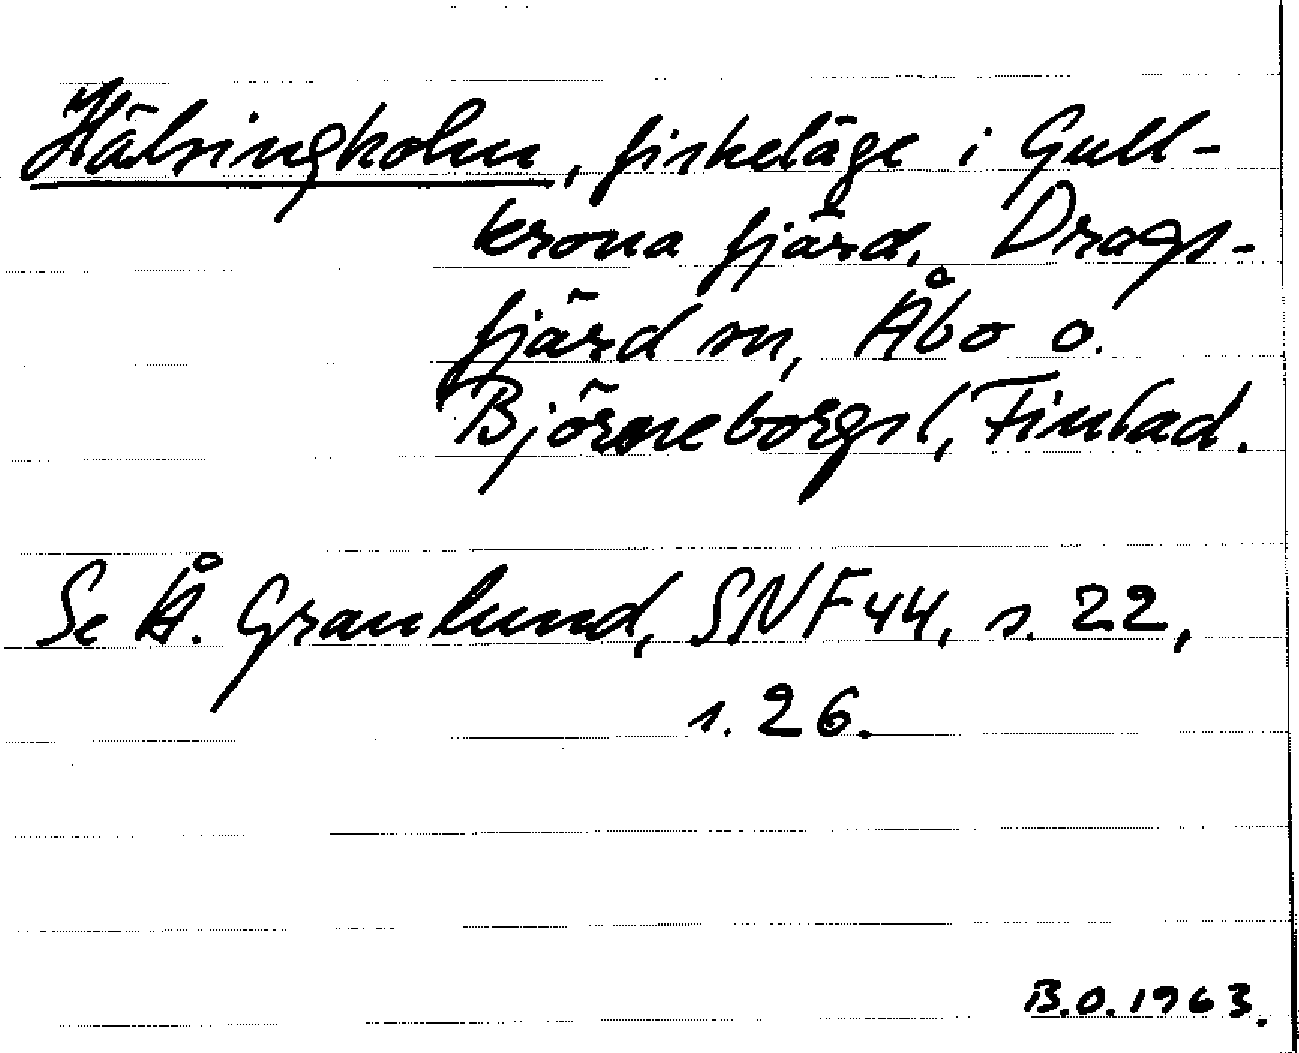 Hälsingholm, fiskeläge i Gull-
krona fjärd, Drags-
fjärd sn, Åbo o.
Björneborgs l, Finlad.
Se Å. Granlund, SNF 44, s. 22,
s. 26.
B.O. 1963.